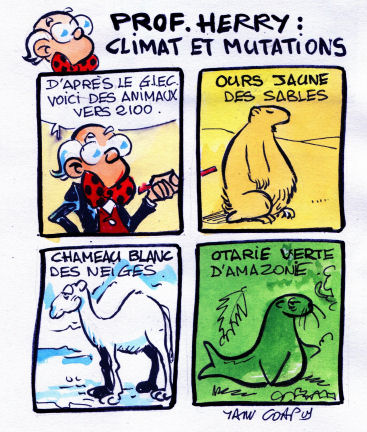 PROF. HERRY:
CLIMAT ET MUTATIONS
D'APRÈS LE G.I.E.C.
VOICI DES ANIMAUX
VERS 2100.
OURS JAUNE
DES SABLES
CHAMEAU BLANC
DES NEIGES
OTARIE VERTE
D'AMAZONIE
YANN